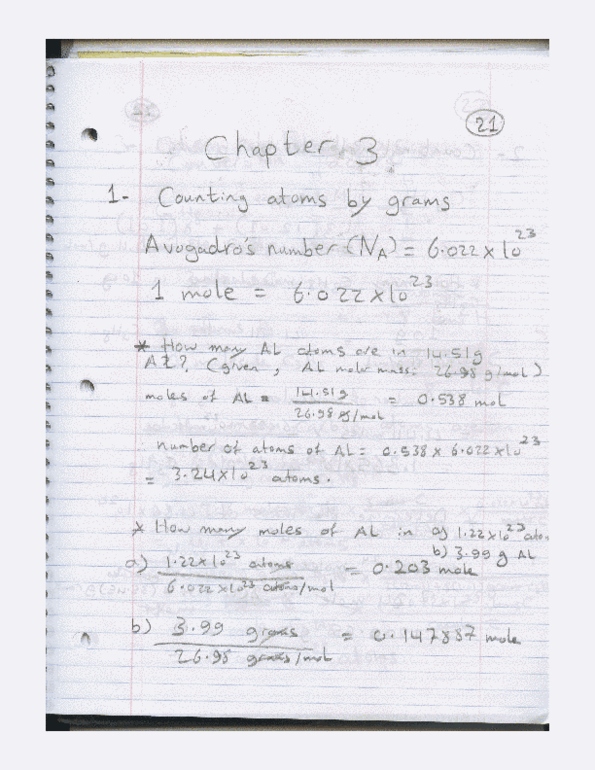 21
Chapter 3
1- Counting atoms by grams
Avogadro's number (NA) = 6.022 x 10^23
1 mole = 6.022 x 10^23
* How many AL atoms are in 14.51g
AL?, (given, AL molar mass: 26.98 g/mol)
moles of AL = 14.51g / 26.98 g/mol = 0.538 mol
number of atoms of AL = 0.538 x 6.022 x 10^23
= 3.24 x 10^23 atoms.
* How many moles of AL in a) 1.22 x 10^23 ato
b) 3.99 g AL
a) 1.22 x 10^23 atoms / 6.022 x 10^23 atoms/mol = 0.203 mole
b) 3.99 grams / 26.98 grams/mol = 0.147887 mole